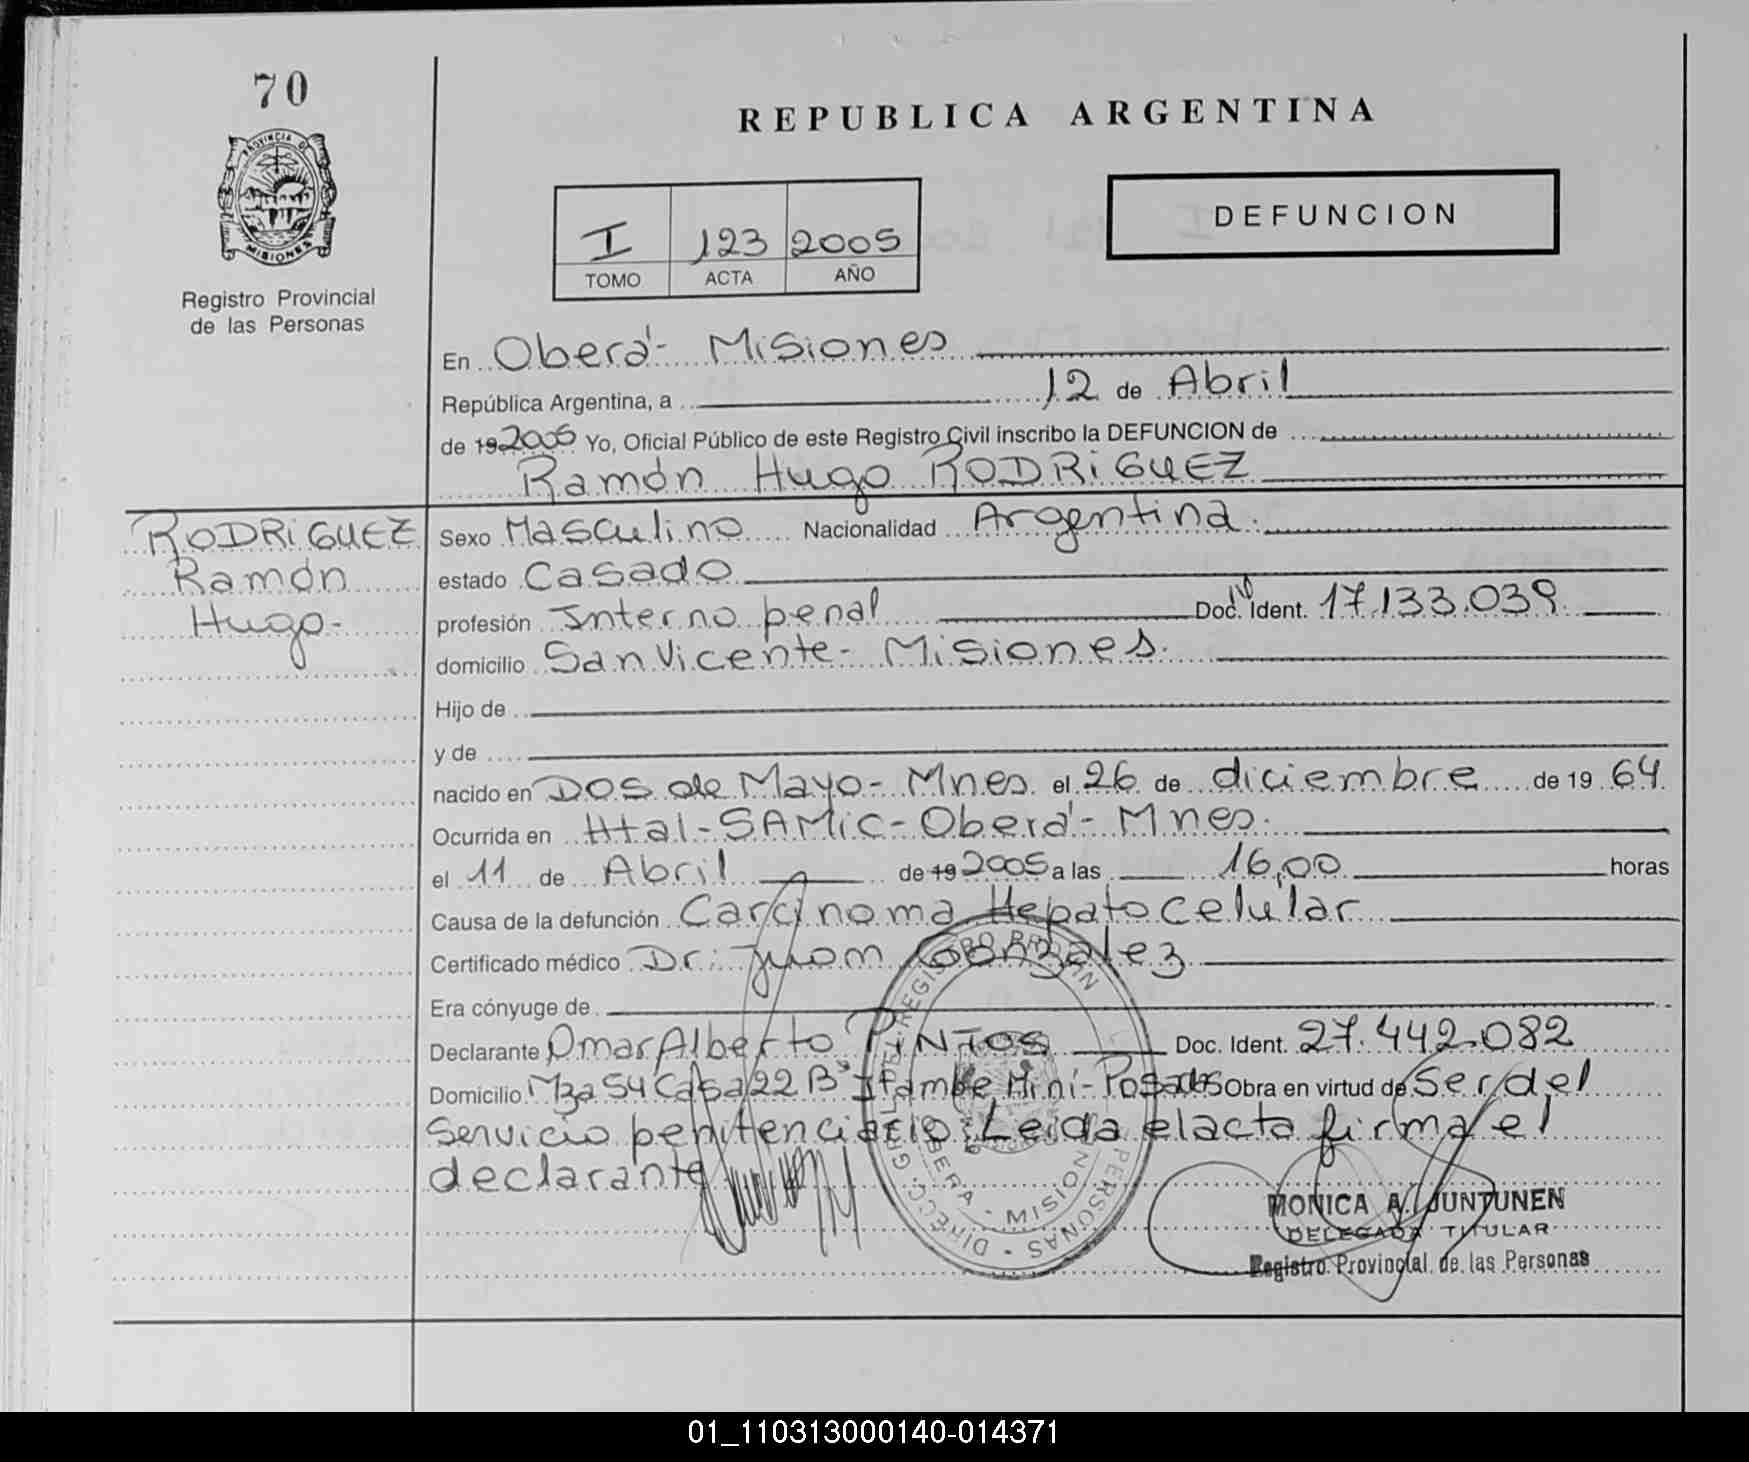 70
PROVINCIA DE
MISIONES
Registro Provincial
de las Personas
REPUBLICA ARGENTINA
I 123 2005
TOMO ACTA AÑO
DEFUNCION
En Oberá - Misiones
República Argentina, a 12 de Abril
de 19 2005 Yo, Oficial Público de este Registro Civil inscribo la DEFUNCION de
Ramón Hugo RODRIGUEZ
RODRIGUEZ
Ramón
Hugo-
Sexo Masculino Nacionalidad Argentina.
estado Casado
profesión Interno penal Doc. Ident. 17.133.039
domicilio San Vicente - Misiones.
Hijo de
y de
nacido en Dos de Mayo - Mnes el 26 de diciembre de 19 64
Ocurrida en Htal - SAMIC - Oberá - Mnes.
el 11 de Abril de 19 2005 a las 16,00 horas
Causa de la defunción Carcinoma Hepatocelular
Certificado médico Dr. Juan Gonzalez
Era cónyuge de
Declarante Omar Alberto PINTOS Doc. Ident. 27.442.082
Domicilio Mza 54 Casa 22 Bº Itambe Mini - Posadas Obra en virtud de Ser del
Servicio penitenciario. Leida el acta firma el
declarante
MONICA A. JUNTUNEN
DELEGADA TITULAR
Registro Provincial de las Personas
01_110313000140-014371